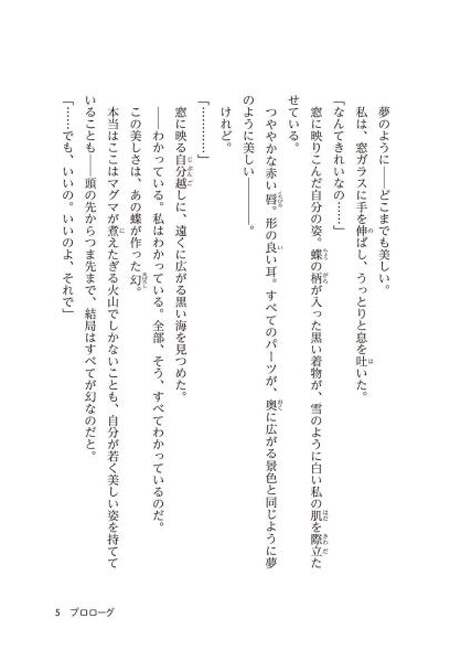 夢のように――どこまでも美しい。
私は、窓ガラスに手を伸ばし、うっとりと息を吐いた。
「なんてきれいなの……」
窓に映りこんだ自分の姿。蝶の柄が入った黒い着物が、雪のように白い私の肌を際立た
せている。
つややかな赤い唇。形の良い耳。すべてのパーツが、奥に広がる景色と同じように夢
のように美しい――――。
けれど。
「…………」
窓に映る自分越しに、遠くに広がる黒い海を見つめた。
――わかっている。私はわかっている。全部、そう、すべてわかっているのだ。
この美しさは、あの蝶が作った幻。
本当はここはマグマが煮えたぎる火山でしかないことも、自分が若く美しい姿を持てて
いることも――頭の先からつま先まで、結局はすべてが幻なのだと。
「……でも、いいの。いいのよ、それで」
5 プロローグ